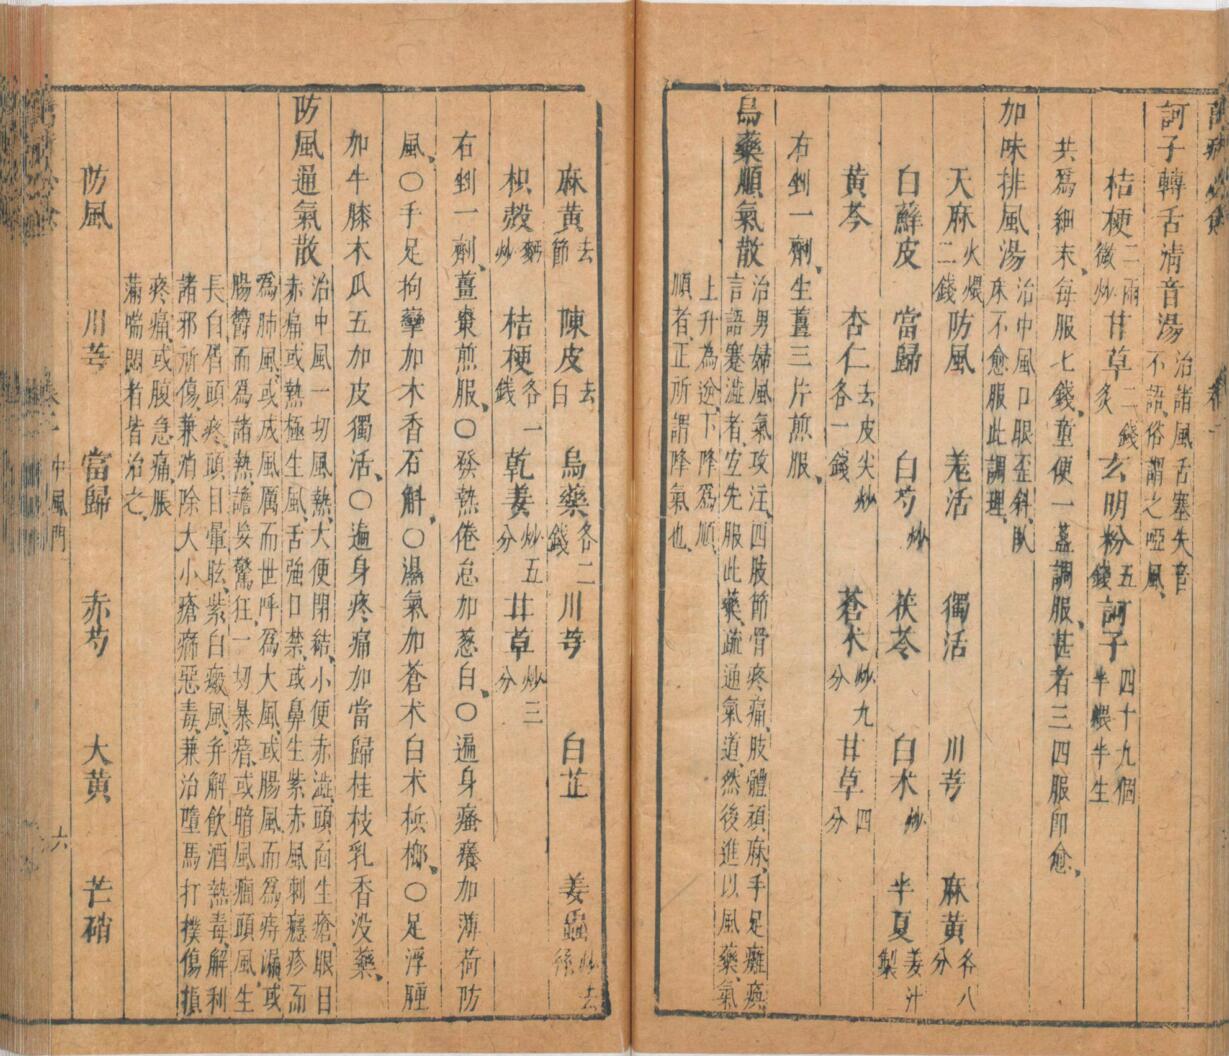 訶子轉舌清音湯 治諸風舌塞失音
不語俗謂之啞風
桔梗 二兩微炒 甘草 二錢炙 玄明粉 五錢 訶子 四十九個半煨半生
共爲細末每服七錢童便一盞調服甚者三四服即愈
加味排風湯 治中風口眼歪斜臥
床不愈服此調理
天麻 火煨二錢 防風 羗活 獨活 川芎 麻黄 各八分
白蘚皮 當歸 白芍 炒 茯苓 白术 炒 半夏 姜汁製
黄芩 杏仁 去皮尖炒各一錢 蒼术 炒九分 甘草 四分
右剉一劑生薑三片煎服
烏藥順氣散 治男婦風氣攻注四肢節骨疼痛肢體頑麻手足癱瘓
言語蹇澁者宜先服此藥疏通氣道然後進以風藥氣
上升為逆下降爲順
順者正所謂降氣也
麻黄 去節 陳皮 去白 烏藥 各二錢 川芎 白芷 姜蟲 炒去絲
枳殼 麪炒 桔梗 各一錢 乾姜 炒五分 甘草 炒三分
右剉一劑薑棗煎服○發熱倦怠加葱白○遍身瘙癢加薄荷防
風○手足拘攣加木香石斛○濕氣加蒼术白术梹榔○足浮腫
加牛膝木瓜五加皮獨活○遍身疼痛加當歸桂枝乳香没藥
防風通氣散 治中風一切風熱大便閉結小便赤澁頭面生瘡眼目
赤痛或熱極生風舌強口禁或鼻生紫赤風刺癮疹而
爲肺風或成風厲而世呼爲大風或腸風而爲痔漏或
腸欝而爲諸熱譫妄驚狂一切暴瘖或暗風癎頭風生
長白屑頭疼頭目暈眩紫白癜風并解飲酒熱毒解利
諸邪所傷兼消除大小瘡癤惡毒兼治墮馬打撲傷損
疼痛或腹急痛脹
滿喘悶者皆治之
防風 川芎 當歸 赤芍 大黄 芒硝
中風門
六